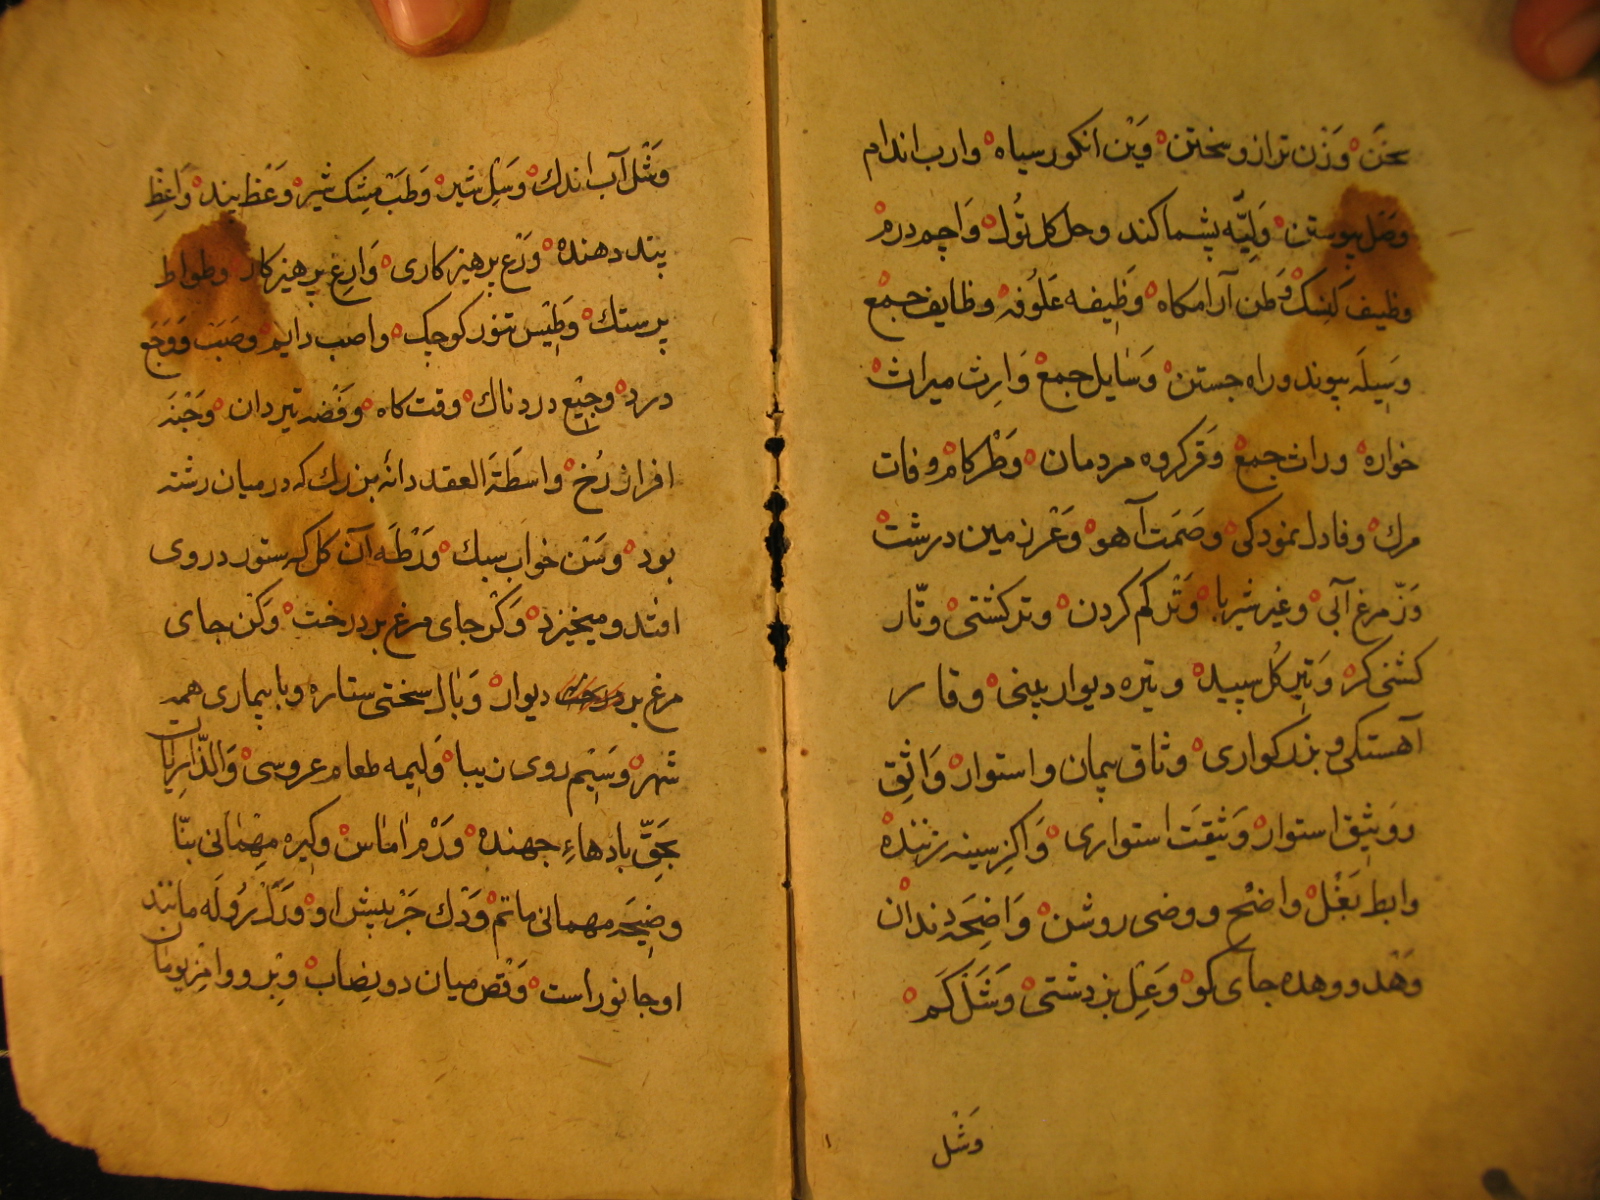 سخن وَزْن ترازو سختن وَیْن انکور سیاه وارب اندام
وصَل پیوستن وَلِیّه پشماکند وحل کل تُول وَاجم درم
وظیف وَطن آرامکاه وَظِیفه عَلُوفه وظایف جمع
وَسِیلَه پیوند و راه جستن وَسَایل جمع وَارِث میراث
خواره وراث جمع وَقر کروه مردمان وَطْر کام وفات
مرك وفادل نمودکی وصَمَت آهو وَعْر زمین درشت
وَزّ مرغ آبی وَتْر کم کردن وتر کشتی وتّار
کشنی کر وَتِیر کُل سپید وتیره دیوار بینی وقار
آهستکی و بزرکواری وثاق پیمان واستوار وَاثِق
ووَثِیق استوار وَثیقَت استواری وَاکِز سینه زننده
وابط بَغْل واضْح ووضی روشن وَاضِحَه دندان
وَهْد ووهده جای کو وَعِل بز دشتی وَشَل کَم
وَشْل
وَشْل آب اندك وَسَل شیر وَطَبْ مشك شیر وَعْظ پند وَاعِظ
پند دهنده وَرَع پرهیز کاری وَارِع پرهیز کار وطواط
پرستك وَطِیْس تنور کوچك واصب دایم وصَبَب وَوَجَع
درد وجِیْع دردناك وقت کاه وفْضه تیردان وَجْنَه
افراز رُخ واسطَةَ العقد دانهٔ بزرك که درمیان رشته
بود وسَن خواب سبك وَرْطَه آن کل که ستور در وی
افتد و میخیزد وَکْر جای مرغ بر درخت وَکْن جای
مرغ بر دیوار وَبَال سختی ستاره وبا بیماری همه
شهر وسِیْم روی زیبا وَلِیمه طعام عروسی وَالذّارِیَات
بَحَقِّ بادهاءِ جهنده وَرَم اماس وکِیره مِهْمانی بنّا
وضِیحَه مهمانی ماتم وَدَك جَرْبیش او وَرَل بُرولَه مانند
او جانور است وَقْص میان دو نِصاب